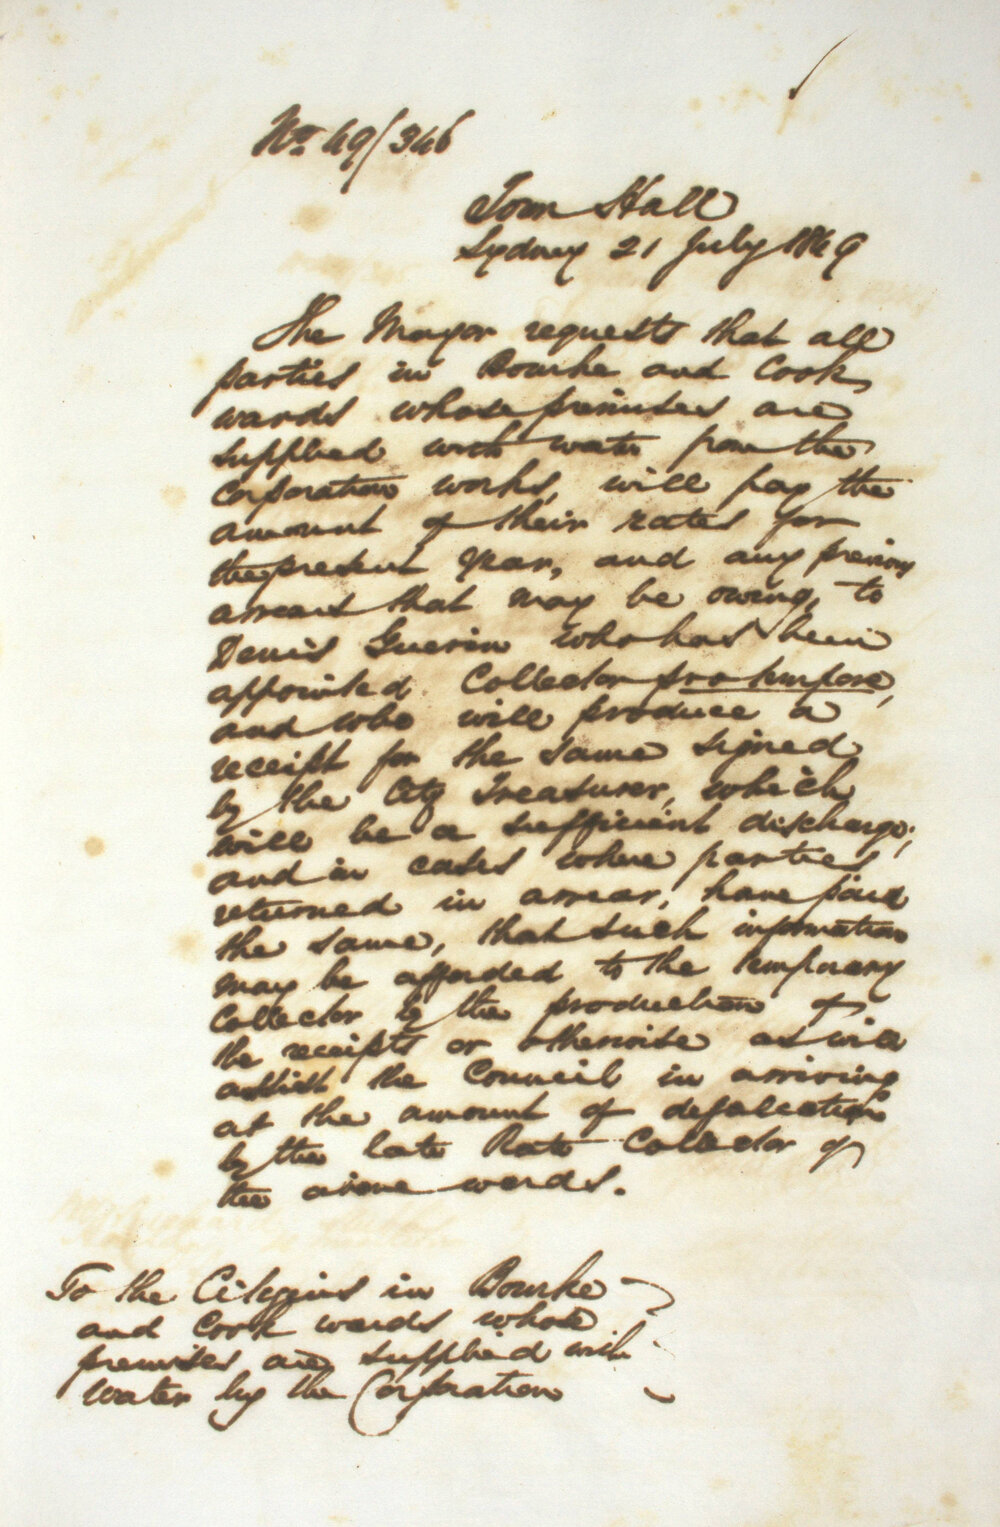 No. 69/346
Town Hall
Sydney 21 July 1869
The Mayor requests that all
parties in Bourke and Cook
wards whose premises are
supplied with water from the
Corporation works, will pay the
amount of their rates for
the present year, and any previous
arrears that may be owing, to
Denis Guerin who has been
appointed Collector pro tempore,
and who will produce a
receipt for the same signed
by the City Treasurer, which
will be a sufficient discharge;
and in cases where parties
returned in arrear, have paid
the same, that such information
may be afforded to the temporary
Collector by the production of
the receipts or otherwise as will
assist the Council in arriving
at the amount of defalcations
by the late Rate Collector of
the above wards.
To the Citizens in Bourke
and Cook wards whose
premises are supplied with
water by the Corporation